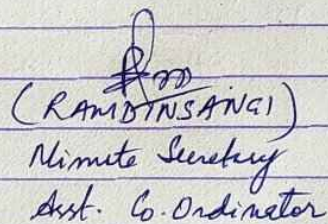 (RAMDINSANGI)
Minute Secretary
Asst. Co. Ordinator